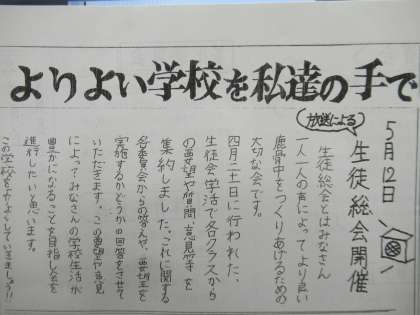 よりよい学校を私達の手で
5月12日
放送による
生徒総会開催
生徒総会とはみなさん
一人一人の声によってより良い
鹿骨中をつくりあげるための
大切な会です。
四月二十一日に行われた、
生徒会学活で各クラスから
の要望や質問、意見等を
集約しました。これに関する
各委員会からの答えや、要望を
実施するかどうかの回答をさせて
いただきます。この要望や意見
によってみなさんの学校生活が
豊かになることを目指し会を
進行したいと思います。
この学校をかっよくしていきましょう!!